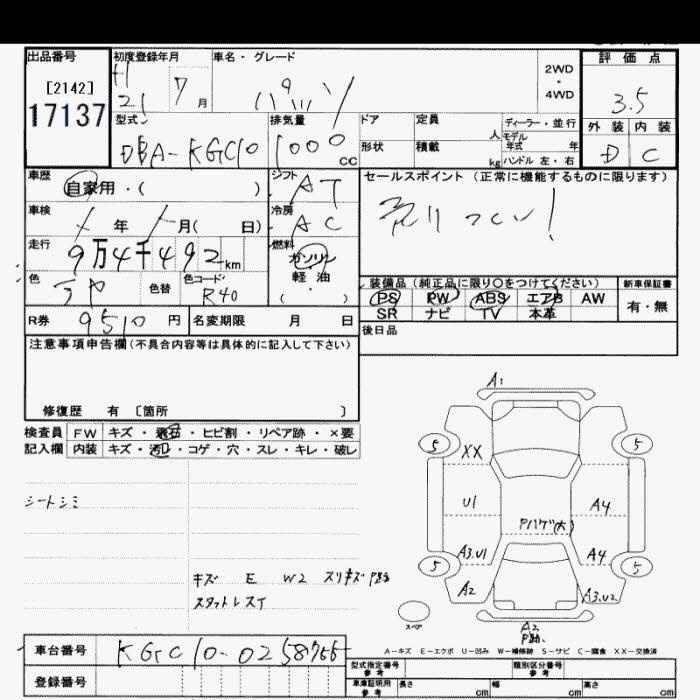 出品番号
[2142]
17137
初度登録年月
H
21 7 月
車名・グレード
パッソ
2WD
・
4WD
評価点
3.5
外装 内装
D C
型式
DBA-KGC10
排気量
1000
CC
ドア
定員
人
ディーラー・並行
モデル
年式 年
形状
積載
kg
ハンドル 左・右
車歴
自家用・( )
シフト
AT
セールスポイント(正常に機能するものに限ります)
売りつくし!
車検
年 月( 日)
冷房
AC
走行
9万4千492km
燃料
ガソリン
軽油
( )
色
色替
色コード
R40
装備品(純正品に限り○をつけてください)
PS PW ABS エアB AW
SR ナビ TV 本革
新車保証書
有・無
R券 9510 円
名変期限 月 日
後日品
注意事項申告欄(不具合内容等は具体的に記入して下さい)
修復歴 有 〔箇所 〕
検査員 FW キズ・飛石・ヒビ割・リペア跡・×要
記入欄 内装 キズ・汚れ・コゲ・穴・スレ・キレ・破レ
シートシミ
キズ E W2 スリキズ P跡
スタットレスイ
A1
5 5
XX
U1 A4
Pハゲ(大)
A3.U1 A4
5 5
A2 A3.U2
スペア
A2
P跡.
A-キズ E-エクボ U-凹み W-補修跡 S-サビ C-腐食 XX-交換済
車台番号 KGC10-0258766
登録番号
型式指定番号
参考
類別区分番号
参考
車庫証明用
参考
長さ cm 幅 cm 高さ cm